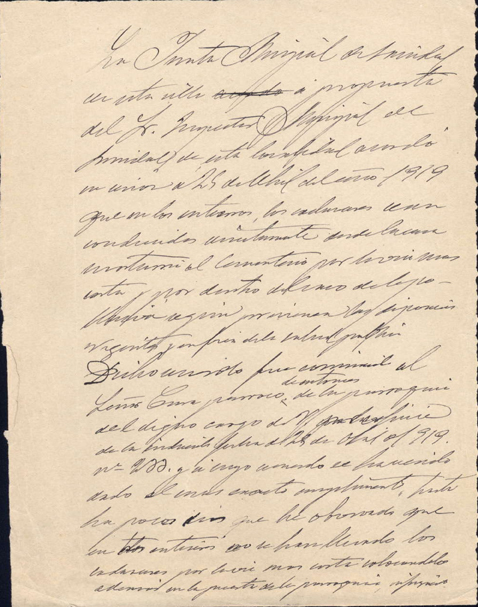 La Junta Municipal de Sanidad
de esta villa acordo á propuesta
del Sr. Inspector Municipal de
Sanidad, de esta localidad acordó
en sesion de 25 de Abril del año 1919
que en los entierros, los cadaveres sean
conducidos directamente desde la casa
mortuoria al Cementerio por la vía mas
corta y por dentro del casco de la po-
blacion segun previenen las disposiciones
vigentes y en bien de la salud publica
Dicho acuerdo fue comunicado al
de entonces
Señor Cura parroco, de la parroquia
del digno cargo de V.
de la de fecha de 28 de Abril de 1919.
nº 233. y á cuyo acuerdo se ha venido
dado el mas exacto cumplimiento, hasta
ha pocos dias que he observado que
en los entierros no se han llevado los
cadaveres por la via mas corta colocandolos
ademas en la puerta de la parroquia